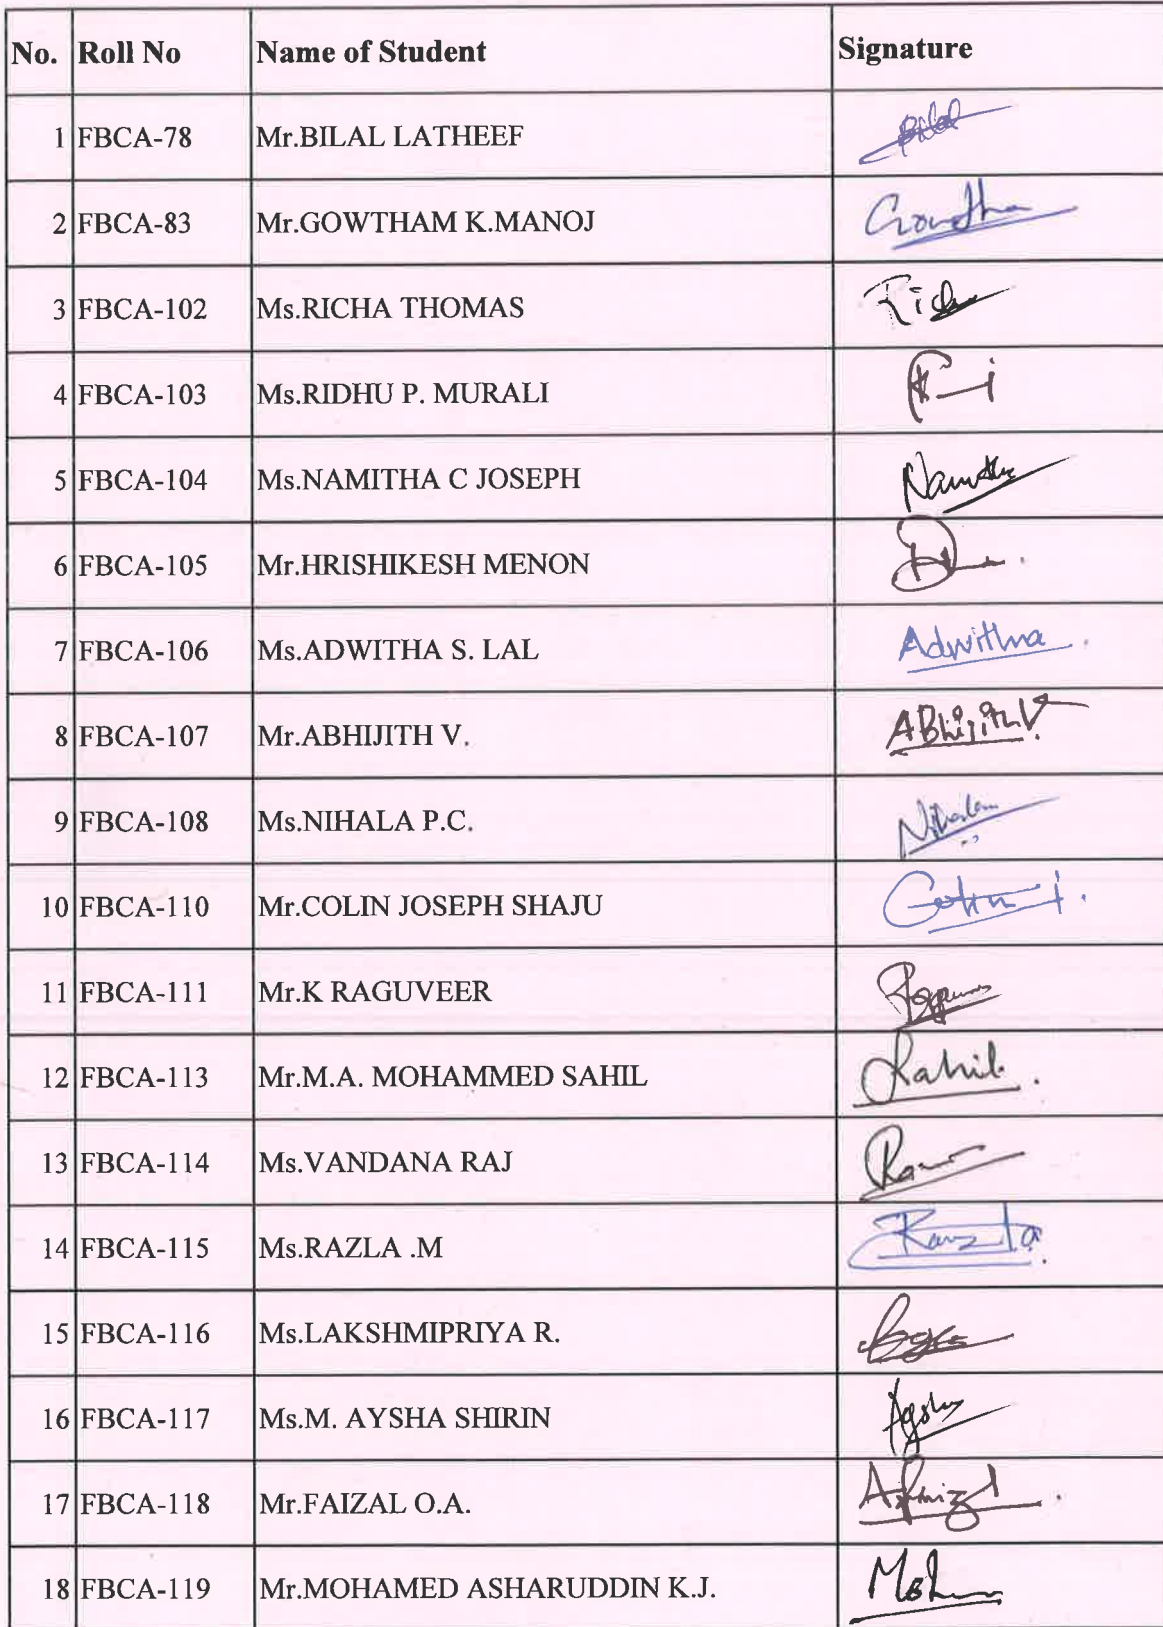 No. Roll No Name of Student Signature
1 FBCA-78 Mr.BILAL LATHEEF Bilal
2 FBCA-83 Mr.GOWTHAM K.MANOJ
3 FBCA-102 Ms.RICHA THOMAS
4 FBCA-103 Ms.RIDHU P. MURALI
5 FBCA-104 Ms.NAMITHA C JOSEPH
6 FBCA-105 Mr.HRISHIKESH MENON
7 FBCA-106 Ms.ADWITHA S. LAL Adwitha
8 FBCA-107 Mr.ABHIJITH V. ABhijithV.
9 FBCA-108 Ms.NIHALA P.C.
10 FBCA-110 Mr.COLIN JOSEPH SHAJU
11 FBCA-111 Mr.K RAGUVEER
12 FBCA-113 Mr.M.A. MOHAMMED SAHIL Sahil.
13 FBCA-114 Ms.VANDANA RAJ
14 FBCA-115 Ms.RAZLA .M
15 FBCA-116 Ms.LAKSHMIPRIYA R.
16 FBCA-117 Ms.M. AYSHA SHIRIN
17 FBCA-118 Mr.FAIZAL O.A.
18 FBCA-119 Mr.MOHAMED ASHARUDDIN K.J.